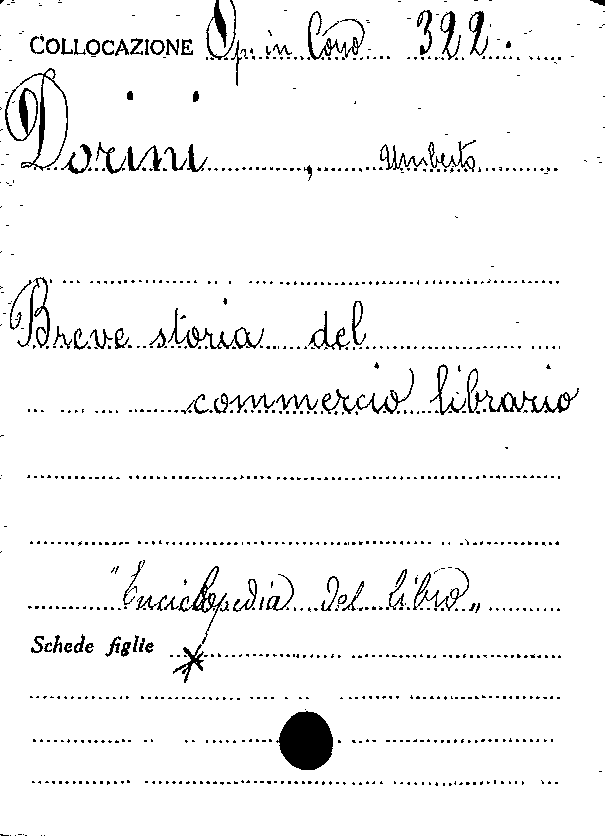 COLLOCAZIONE Op. in Corso 322.
Dorini, Umberto
Breve storia del
commercio librario
"Enciclopedia del libro„
Schede figlie